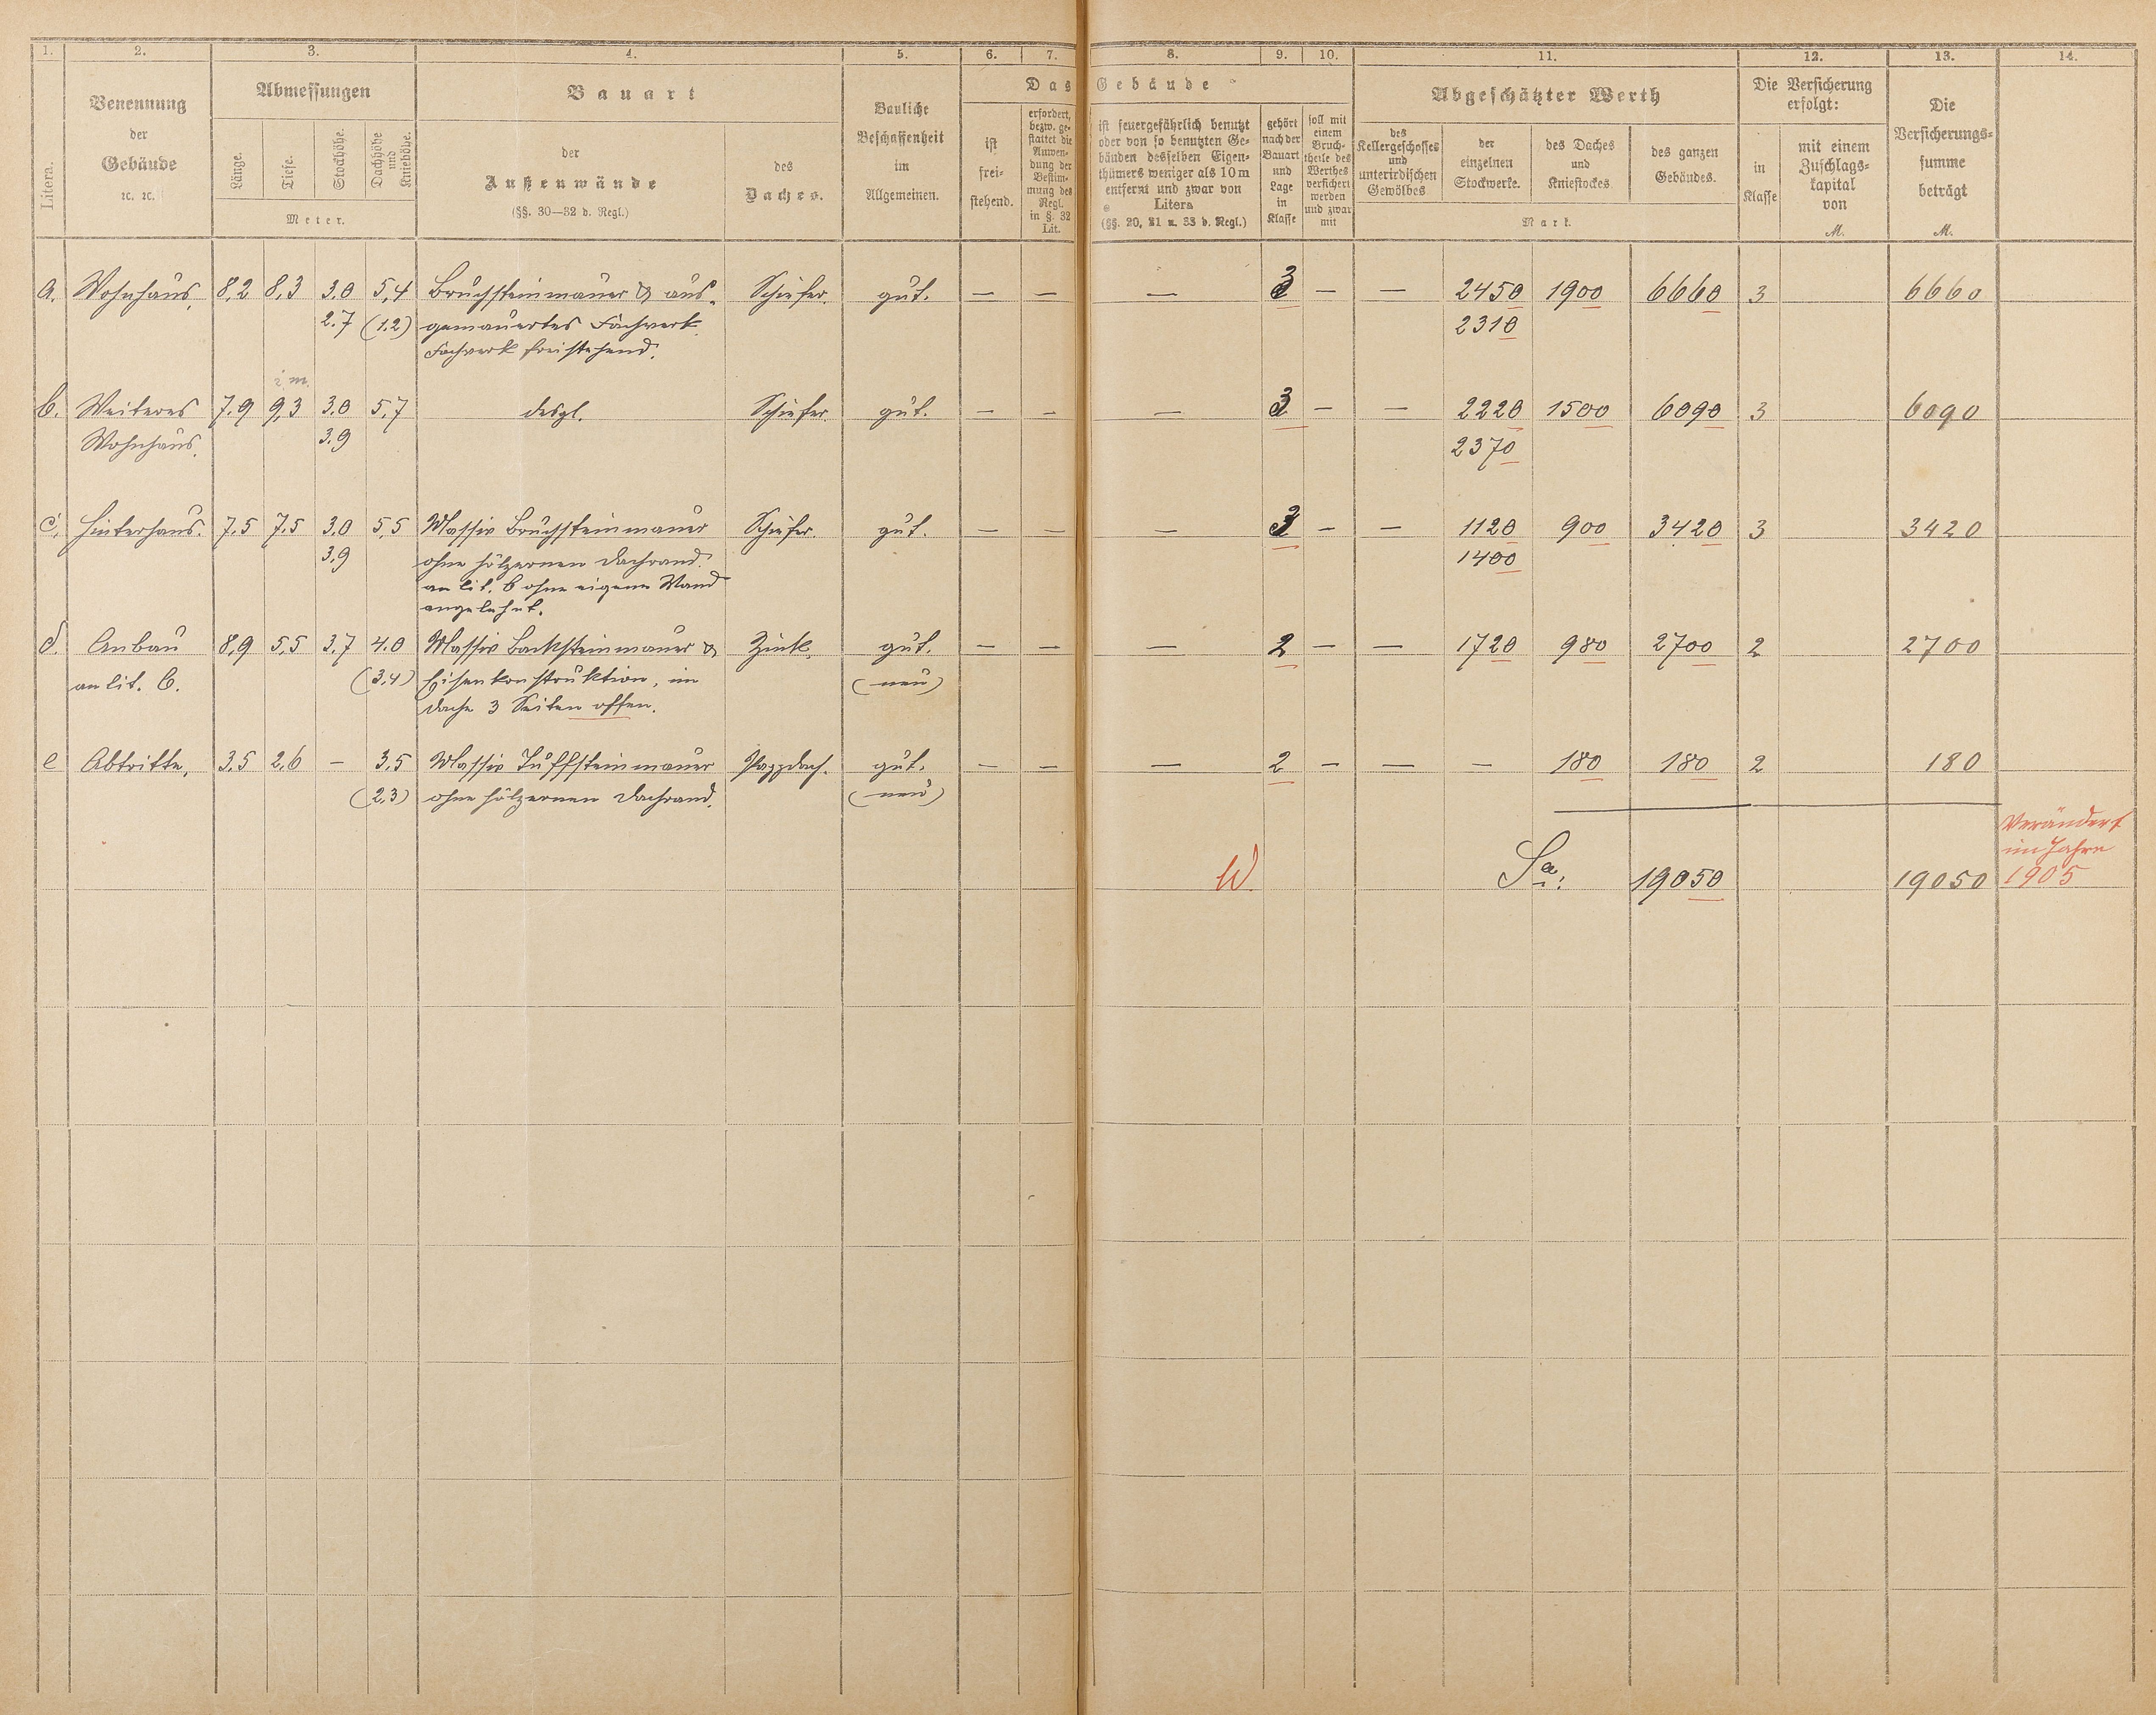 1. 2. 3. 4. 5. 6. 7. 8. 9. 10. 11. 12. 13. 14.
Litera.
Benennung
der
Gebäude
ꝛc. ꝛc.
Abmessungen
Länge.
Tiefe.
Stockhöhe.
Dachhöhe
und
Kniehöhe.
Meter.
Bauart
der
Außenwände
(§§. 30—32 d. Regl.)
des
Daches.
Bauliche
Beschaffenheit
im
Allgemeinen.
Das Gebäude
ist
frei-
stehend.
erfordert,
bezw. ge-
stattet die
Anwen-
dung der
Bestim-
mung des
Regl.
in §. 32
Lit.
ist feuergefährlich benutzt
oder von so benutzten Ge-
bäuden desselben Eigen-
thümers weniger als 10 m
entfernt und zwar von
Litera
(§§. 20, 21 u. 33 d. Regl.)
gehört
nach der
Bauart
und
Lage
in
Klasse
soll mit
einem
Bruch-
theile des
Werthes
versichert
werden
und zwar
mit
Abgeschätzter Werth
des
Kellergeschosses
und
unterirdischen
Gewölbes
der
einzelnen
Stockwerke.
des Daches
und
Kniestockes
des ganzen
Gebäudes.
Mark.
Die Versicherung
erfolgt:
in
Klasse
mit einem
Zuschlags-
kapital
von
M.
Die
Versicherungs-
summe
beträgt
M.
a. Wohnhaus. 8,2 8,3 3,0 5,4 Bruchsteinmauer & aus- Schiefer. gut. — — — 3 — — 2450 1900 6660 3 6660
2,7 (1,2) gemauertes Fachwerk. 2310
Fachwerk freistehend.
i. m.
b. Weiteres 7,9 9,3 3,0 5,7 desgl. Schiefer. gut. — — — 3 — — 2220 1500 6090 3 6090
Wohnhaus. 3,9 2370
c. Hinterhaus. 7,5 7,5 3,0 5,5 Massiv Bruchsteinmauer Schiefer. gut. — — — 3 — — 1120 900 3420 3 3420
3,9 ohne hölzernen Dachrand. 1400
an lit. b ohne eigene Wand
angelehnt.
d. Anbau 8,9 5,5 3,7 4,0 Massiv Backsteinmauer & Zink. gut. — — — 2 — — 1720 980 2700 2 2700
an lit. b. (3,4) Eisenkonstruktion, im (neu)
Dache 3 Seiten offen.
e Abtritte. 3,5 2,6 — 3,5 Massiv Tuffsteinmauer Pappdach. gut. — — — 2 — — — 180 180 2 180
(2,3) ohne hölzernen Dachrand. (neu)
Verändert
im Jahre
Sa: 19050 19050 1905